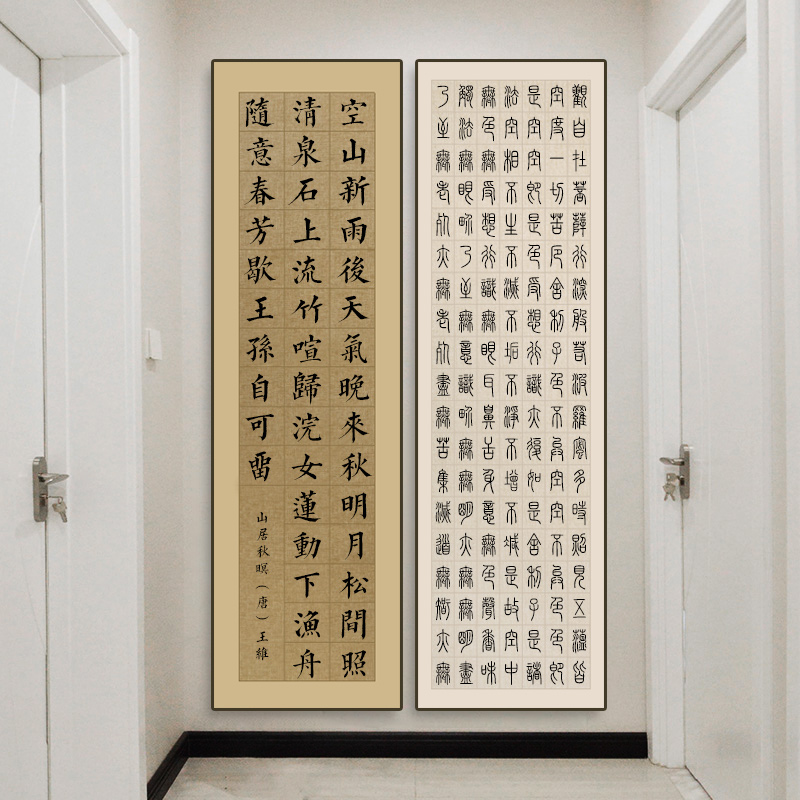 空山新雨後天氣晚來秋明月松間照
清泉石上流竹喧歸浣女蓮動下漁舟
隨意春芳歇王孫自可畱
山居秋暝（唐）王維
觀自在菩薩行深般若波羅蜜多時照見五蘊皆
空度一切苦厄舍利子色不異空空不異色色即
是空空即是色受想行識亦復如是舍利子是諸
法空相不生不滅不垢不淨不增不減是故空中
無色無受想行識無眼耳鼻舌身意無色聲香味
觸法無眼界乃至無意識界無無明亦無無明盡
乃至無老死亦無老死盡無苦集滅道無智亦無